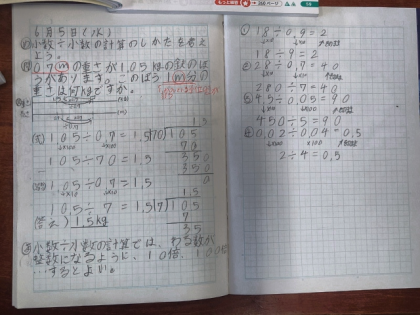 6月5日(火)
め 小数÷小数の計算のしかたを考え
よう。
0.7mの重さが1.05kgの鉄のぼ
うがあります。このぼう1m分の
重さは何kgですか。
1.05÷0.7=1.5
×100 ×100
105÷70=1.5
1.5
70)105
70
350
350
0
1.05÷0.7=1.5
×10 ×10
10.5÷7=1.5
1.5
7)10.5
7
35
答え)1.5kg
ま 小数÷小数の計算では、わる数が
整数になるように、10倍、100倍
…するとよい。
① 1.8÷0.9=2
×10 ×10
18÷9=2
② 28÷0.7=40
×10 ×10
280÷7=40
③ 4.5÷0.05=90
×100 ×100
450÷5=90
④ 0.02÷0.04=0.5
×100 ×100
2÷4=0.5